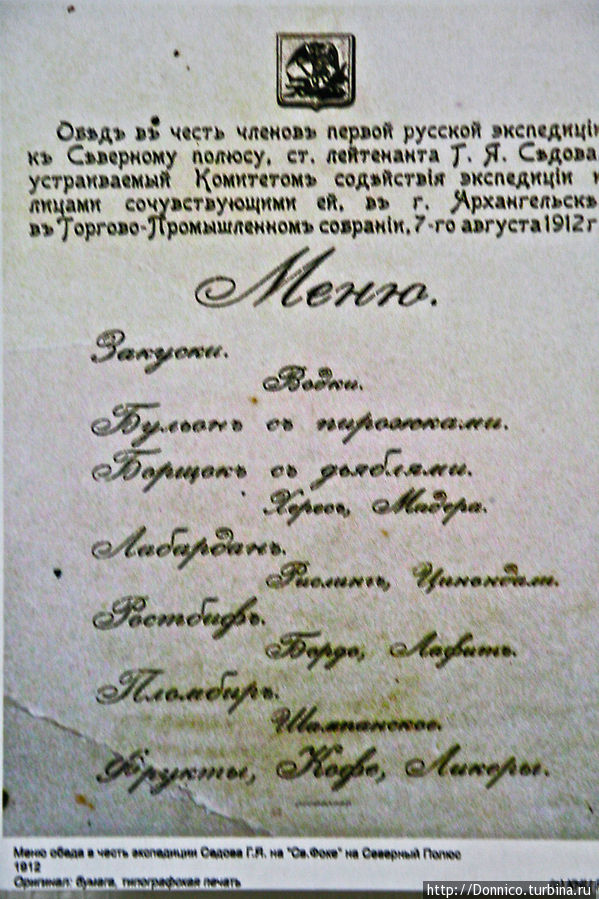 Обѣдъ въ честь членовъ первой русской экспедиціи
къ Сѣверному полюсу, ст. лейтенанта Г. Я. Сѣдова,
устраиваемый Комитетомъ содѣйствія экспедиціи и
лицами сочувствующими ей, въ г. Архангельскѣ
въ Торгово-Промышленномъ собраніи, 7-го августа 1912 г
Меню.
Закуски.
Водки.
Бульонъ съ пирожками.
Борщокъ съ дьяблями.
Хересъ, Мадера.
Лабарданъ.
Рислингъ, Цинондали.
Ростбифъ.
Бордо, Лафитъ.
Пломбиръ.
Шампанское.
Фрукты, Кофе, Ликеры.
Меню обеда в честь экспедиции Седова Г.Я. на "Св.Фоке" на Северный Полюс
1912
Оригинал: бумага, типографская печать
http://Donnico.turbina.ru/